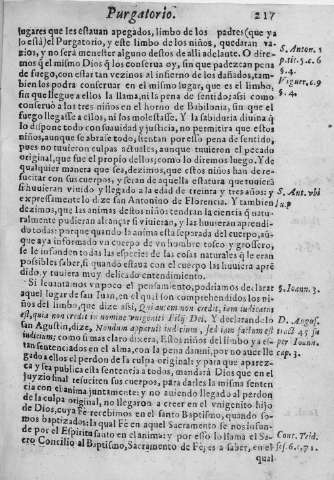 Purgatorio. 217
lugares que les estauan apegados, limbo de los padres (que ya
lo està) el Purgatorio, y este limbo de los niños, quedaran va-
zios, y no serà menester alguno destos de alli adelante. O dire-
mos q̃ el mismo Dios q̃ los conserua oy, sin que padezcan pena
de fuego, con estar tan vezinos al infierno de los dañados, tam-
bien los podra conseruar en el mismo lugar, que es el limbo,
sin que llegue a ellos la llama, ni la pena de sentido; assi como
conseruò a los tres niños en el horno de Babilonia, sin que el
fuego llegasse a ellos, ni los molestasse. Y la sabiduria diuina q̃
lo dispone todo con suauidad y justicia, no permitira que estos
niños, aunque se abrase todo, sientan por esso pena de sentido,
pues no tuuieron culpas actuales, aunque tuuieron el pecado
original, que fue el propio dellos; como lo diremos luego. Y de
qualquier manera que sea, dezimos, que estos niños han de re-
sucitar con sus cuerpos, y seran de aquella estatura que tuuierã
si huuieran viuido y llegado a la edad de treinta y tres años; y
expressamente lo dize san Antonino de Florencia. Y tambien
dezimos, que las animas destos niños tendran la ciencia q̃ natu-
ralmente pudieran alcançar si viuieran, y las huuieran aprendi-
do todas: porque quando la anima esta separada del cuerpo, aũ-
que aya informado vn cuerpo de vn hombre tosco y grossero,
se le infunden todas las especies de las cosas naturales q̃ le eran
possibles saber, si quando estaua con el cuerpo las huuiera apre-
dido, y tuuiera muy delicado entendimiento.
Si leuantamos vn poco el pensamiento, podriamos declarar
aquel lugar de san Iuan, en el qual son comprehendidos los ni-
ños del limbo, que dize assi, Qui autem non credit, iam iudicatus
est, quia non credit in nomine vnigeniti Filij Dei. Y declarandolo
san Agustin, dize, Nondum apparuit iudicium, sed iam factum est
iudicium; como si mas claro dixera, Estos niños del limbo ya es-
tan sentenciados en el alma, con la pena damni, por no auer lle-
gado a ellos el perdon de la culpa original: y para que aparez-
ca y sea publica esta sentencia a todos, mandarà Dios que en el
juyzio final resuciten sus cuerpos, para darles la misma senten-
cia con el anima juntamente: y no auiendo llegado al perdon
de la culpa original, no llegaron a creer en el vnigenito hijo
de Dios, cuya Fè recebimos en el santo Baptismo, quando so-
mos baptizados: la qual Fè en aquel Sacramento se nos infun-
de por el Espiritu santo en el anima: y por esso lo llama el Sa-
cro Concilio al Baptismo, Sacramento de Fè; es a saber, en el
qual
S. Anton. 1
p. tit. 5. c. 6
§. 4.
Viguer. c. 9
§. 4.
S. Ant. vbi
sup
S. Ioann. 3.
D. Augus.
tract. 45 su
per Ioann.
cap. 3.
Conc. Trid.
sess. 6. c. 7.